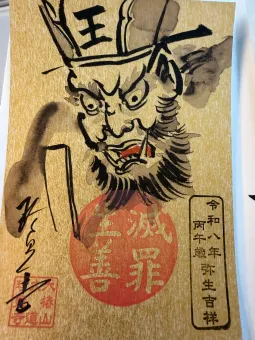 王
令和八年弥生吉祥
丙午歳
滅罪
生善
大椿山